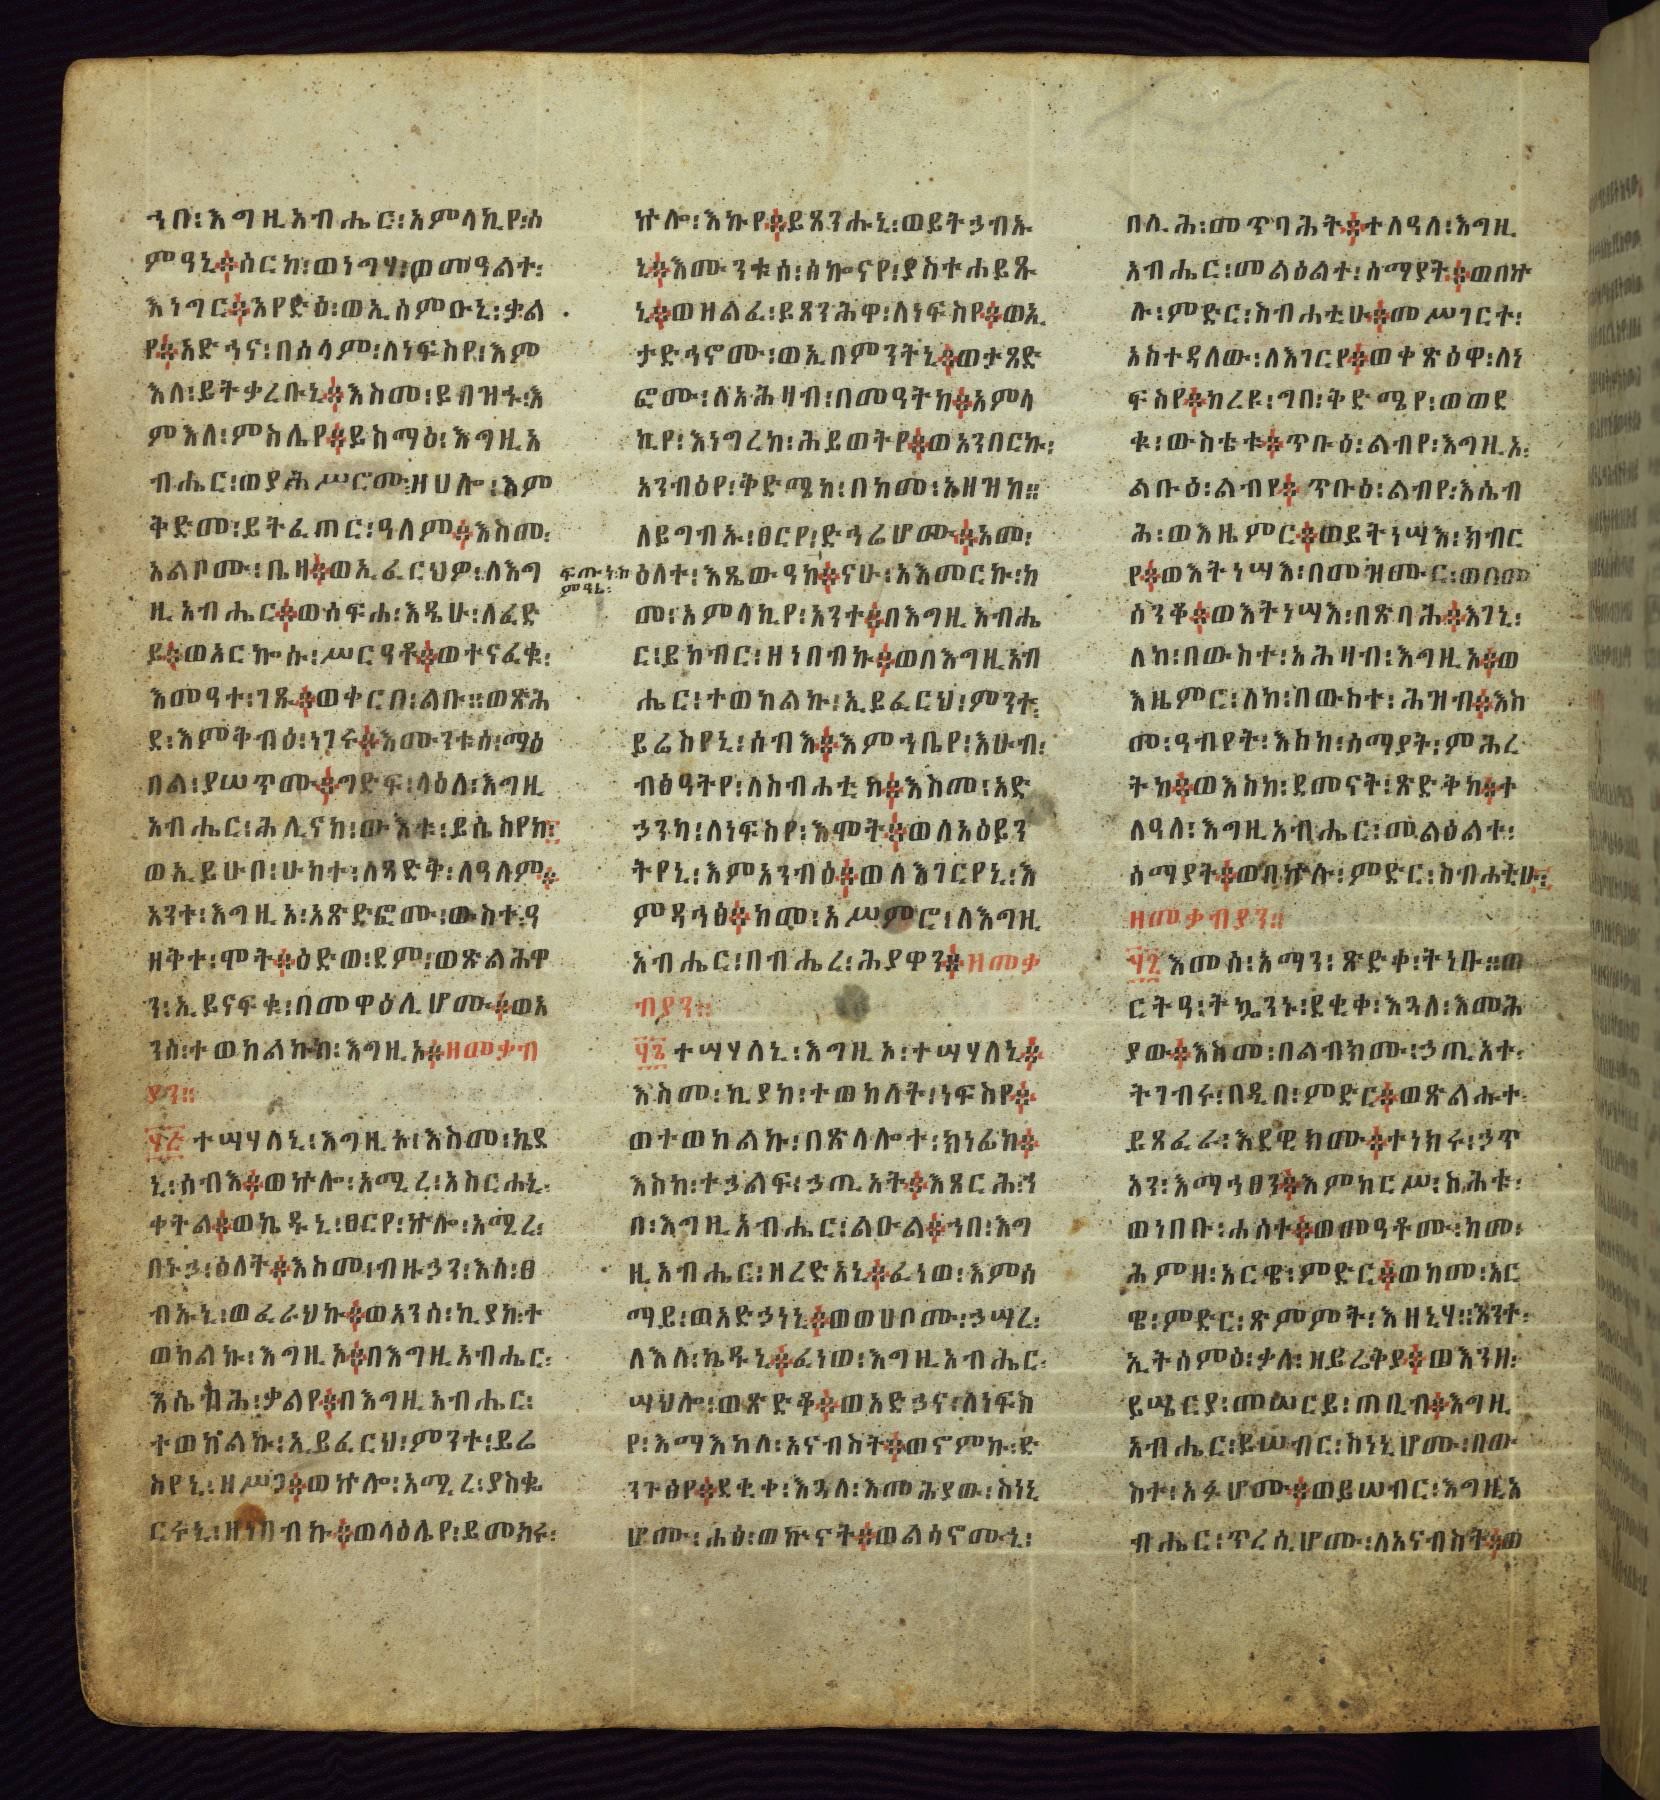 ኀበ፡እግዚአብሔር፡አምላኪየ፡ሰ
ምዓኒ፨ሰርከ፡ወነግሃ፡ወመዓልተ፡
እነግር፨እየድዕ፡ወኢሰምዑኒ፡ቃል
የ፨አድኀና፡በሰላም፡ለነፍስየ፡እም
እለ፡ይትቃረቡኒ፨እስመ፡ይበዝኁ፡እ
ምእለ፡ምስሌየ፨ይስማዕ፡እግዚአ
ብሔር፡ወያሕሥርሙ፡ዘሀሎ፡እም
ቅድመ፡ይትፈጠር፡ዓለም፨እስመ፡
አልቦሙ፡ቤዛ፨ወኢፈርህዎ፡ለእግ
ዚአብሔር፨ወሰፍሐ፡እዴሁ፡ለፈድ
ይ፨ወአርኰሱ፡ሥርዓቶ፨ወተናፈቁ፡
እመዓተ፡ገጹ፨ወቀርበ፡ልቡ።ወጽሕ
ደ፡እምቅብዕ፡ነገሩ፨እሙንቱሰ፡ማዕ
በል፡ያሠጥሙ፨ግድፍ፡ላዕለ፡እግዚ
አብሔር፡ሕሊናከ፡ውእቱ፡ይሴስየከ፨
ወኢይሁበ፡ሁከተ፡ለጻድቅ፡ለዓለም፨
አንተ፡እግዚአ፡አጽድፎሙ፡ውስተ፡ዓ
ዘቅተ፡ሞት፨ዕድወ፡ደም፡ወጽልሕዋ
ን፡ኢይናፍቁ፡በመዋዕሊሆሙ፨ወአ
ንሰ፡ተወከልኩከ፡እግዚኦ፨ዘመቃብ
ያን።
፶፭ ተሣሃለኒ፡እግዚኦ፡እስመ፡ኬደ
ኒ፡ሰብእ፨ወኵሎ፡አሚረ፡አስርሐኒ፡
ቀትል፨ወኬዱኒ፡ፀርየ፡ኵሎ፡አሚረ፡
በኑኃ፡ዕለት፨እስመ፡ብዙኃን፡እለ፡ፀ
ብኡኒ፡ወፈራህኩ፨ወአንሰ፡ኪያከ፡ተ
ወከልኩ፡እግዚኦ፨በእግዚአብሔር፡
እሴብሕ፡ቃልየ፨በእግዚአብሔር፡
ተወከልኩ፡ኢይፈርህ፡ምንተ፡ይሬ
ስየኒ፡ዘሥጋ፨ወኵሎ፡አሚረ፡ያስቈ
ርሩኒ፡ዘነበብኩ፨ወላዕሌየ፡ይመክሩ፡
ኵሎ፡እኩየ፨ይጸንሑኒ፡ወይትኃብኡ
ኒ፨እሙንቱሰ፡ሰኰናየ፡ያስተሐይጹ
ኒ፨ወዘልፈ፡ይጸንሕዋ፡ለነፍስየ፨ወኢ
ታድኅኖሙ፡ወኢበምንትኒ፨ወታጸድ
ፎሙ፡ለአሕዛብ፡በመዓትከ፨አምላ
ኪየ፡እነግረከ፡ሕይወትየ፨ወአንበርኩ፡
አንብዕየ፡ቅድሜከ፡በከመ፡አዘዝከ።
ለይግብኡ፡ፀርየ፡ድኅሬሆሙ፨አመ፡
ዕለተ፡እጼውዓከ፨ናሁ፡አእመርኩ፡ከ
መ፡አምላኪየ፡አንተ፨በእግዚአብሔ
ር፡ይከብር፡ዘነበብኩ፨ወበእግዚአብ
ሔር፡ተወከልኩ፡ኢይፈርህ፡ምንተ፡
ይሬስየኒ፡ሰብእ፨እምኀቤየ፡እሁብ፡
ብፅዓትየ፡ለስብሐቲከ፨እስመ፡አድ
ኃንካ፡ለነፍስየ፡እሞት፨ወለአዕይን
ትየኒ፡እምአንብዕ፨ወለእገርየኒ፡እ
ምዳኅፅ፨ከመ፡አሥምሮ፡ለእግዚ
አብሔር፡በብሔረ፡ሕያዋን፨ዘመቃ
ብያን።
፶፮ ተሣሃለኒ፡እግዚኦ፡ተሣሃለኒ፨
እስመ፡ኪያከ፡ተወከለት፡ነፍስየ፨
ወተወከልኩ፡በጽላሎተ፡ክነፊከ፨
እስከ፡ተኃልፍ፡ኃጢአት፨እጸርሕ፡ኀ
በ፡እግዚአብሔር፡ልዑል፨ኀበ፡እግ
ዚአብሔር፡ዘረድአኒ፨ፈነወ፡እምሰ
ማይ፡ወአድኃነኒ፨ወወሀቦሙ፡ኃሣረ፡
ለእለ፡ኬዱኒ፨ፈነወ፡እግዚአብሔር፡
ሣህሎ፡ወጽድቆ፨ወአድኃና፡ለነፍስ
የ፡እማእከለ፡አናብስት፨ወኖምኩ፡ድ
ንጉፅየ፨ደቂቀ፡እጓለ፡እመሕያው፡ስነኒ
ሆሙ፡ሐፅ፡ወኵናት፨ወልሳኖሙኒ፡
በሊሕ፡መጥባሕት፨ተለዓለ፡እግዚ
አብሔር፡መልዕልተ፡ሰማያት፨ወበኵ
ሉ፡ምድር፡ስብሐቲሁ፨መሥገርተ፡
አስተዳለው፡ለእገርየ፨ወቀጽዕዋ፡ለነ
ፍስየ፨ከረዩ፡ግበ፡ቅድሜየ፡ወወደ
ቁ፡ውስቴቱ፨ጥቡዕ፡ልብየ፡እግዚኦ፡
ልቡዕ፡ልብየ፨ጥቡዕ፡ልብየ፡እሴብ
ሕ፡ወእዜምር፨ወይትነሣእ፡ክብር
የ፨ወእትነሣእ፡በመዝሙር፡ወበመ
ሰንቆ፨ወእትነሣእ፡በጽባሕ፨እገኒ፡
ለከ፡በውስተ፡አሕዛብ፡እግዚኦ፨ወ
እዜምር፡ለከ፡በውስተ፡ሕዝብ፨እስ
መ፡ዓብየት፡እስከ፡ሰማያት፡ምሕረ
ትከ፨ወእስከ፡ደመናት፡ጽድቅከ፨ተ
ለዓለ፡እግዚአብሔር፡መልዕልተ፡
ሰማያት፨ወበኵሉ፡ምድር፡ስብሐቲሁ፨
ዘመቃብያን።
፶፯ እመሰ፡አማን፡ጽድቀ፡ትነቡ።ወ
ርትዓ፡ትኴንኑ፡ደቂቀ፡እጓለ፡እመሕ
ያው፨እስመ፡በልብክሙ፡ኃጢአተ፡
ትገብሩ፡በዲበ፡ምድር፨ወጽልሑተ፡
ይጸፈራ፡እደዊክሙ፨ተነክሩ፡ኃጥ
አን፡እማኅፀን፨እምከርሥ፡ስሕቱ፡
ወነበቡ፡ሐሰተ፨ወመዓቶሙ፡ከመ፡
ሕምዘ፡አርዌ፡ምድር፨ወከመ፡አር
ዌ፡ምድር፡ጽምምት፡እዘኒሃ።እንተ፡
ኢትሰምዕ፡ቃለ፡ዘይሬቅያ፨ወእንዘ፡
ይሤርያ፡መሠርይ፡ጠቢብ፨እግዚ
አብሔር፡ይሠብር፡ስነኒሆሙ፡በው
ስተ፡አፉሆሙ፨ወይሠብር፡እግዚአ
ብሔር፡ጥረሲሆሙ፡ለአናብስት፨ወ